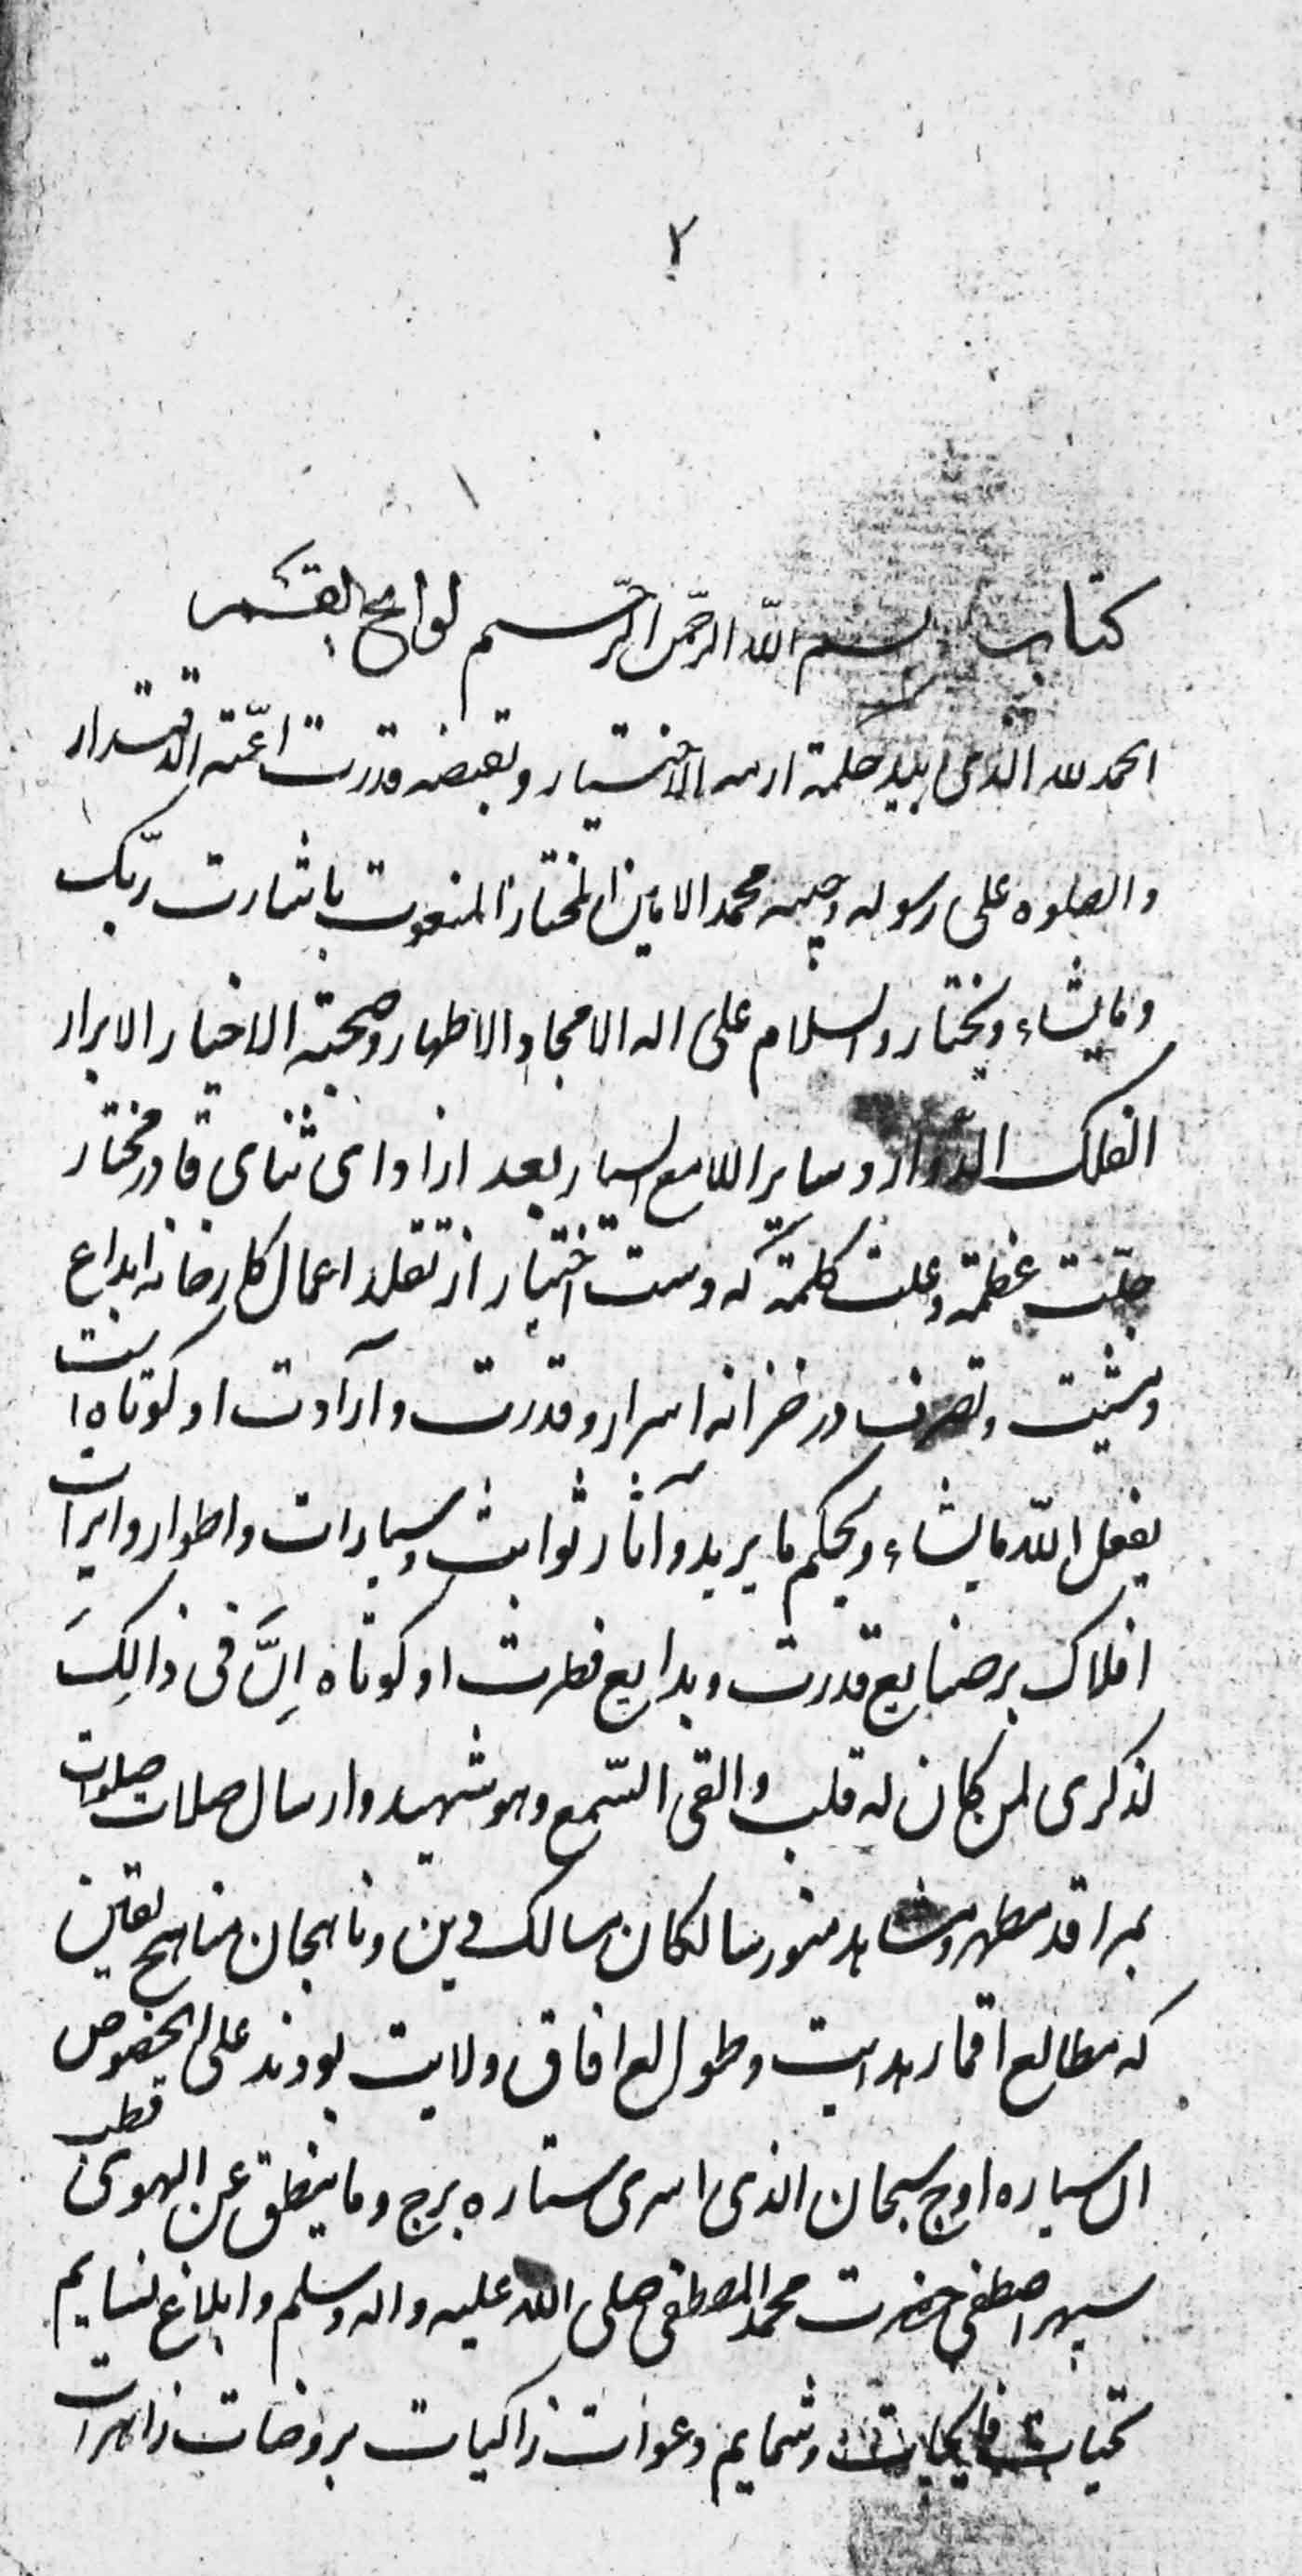 ۲
کتاب بسم الله الرحمن الرحیم لوایح القمر
الحمد لله الذی بید حکمته ازمه الاختیار و بقبضه قدرت اعمّته الاقتدار
والصلوه علی رسوله وحبیبه محمد الامین المختار المنعوت باشارت ربّک
ومایشاء ویختار والسلام علی اله الامجاد الاطهار وصحبته الاخیار الابرار
الفلک الدّوار و سایر اللامع السیار بعد از ادای ثنای قادر مختار
جلّت عظمته وعلت کلمته که دست اختیار از تقلد اعمال کارخانه ابداع
ومشیت وتصرف در خزانه اسرار وقدرت وآرادت او کوتاه است
یفعل الله مایشاء ویحکم ما یرید وآثار ثوابت وسیارات واطوار وایرات
افلاک بر صنایع قدرت وبدایع فطرت او کوتاه اِنَّ فی ذالِکَ
لذکری لمن کان له قلب والقی السّمع وهو شهید وارسال صلات صلوات
بمراقد مطهر ومشاهد منور سالکان مسالک دین وناهجان مناهج یقین
که مطالع اقمار هدایت وطوالع افاق ولایت بودند علی الخصوص
ان سیاره اوج سبحان الذی اسری ستاره برج وما ینطق عن الهوی قطب
سپهر اصطفی حضرت محمد المصطفی صلی الله علیه واله وسلم وابلاغ نسایم
تحیات فایحات وشمایم دعوات زاکیات بروضات زاهرات